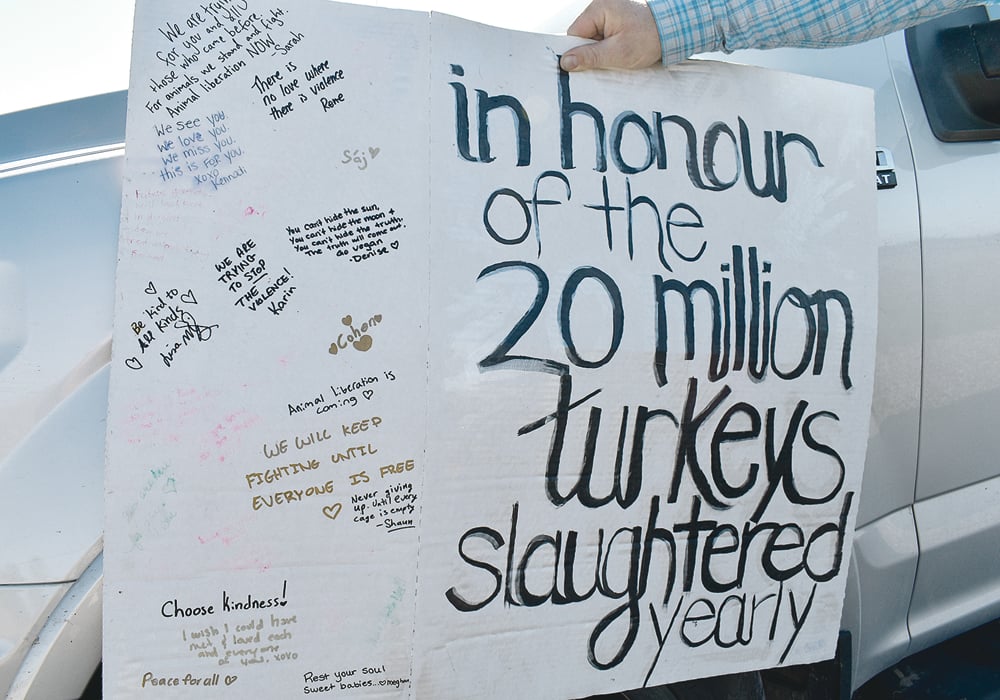 We are truly
for you and ALL
those who came before.
For animals we stand and fight.
Animal liberation NOW Sarah
There is
no love where
there is violence
Rome
We see you.
We love you.
We miss you.
this is FOR YOU.
xoxo
Kennati
Sáj
You can't hide the sun,
You can't hide the moon +
You can't hide the truth.
The truth will come out.
Go vegan
-Denise
WE ARE
TRYING
TO STOP
THE
VIOLENCE!
Karin
Be kind to
All Kinds
Cohen
Animal Liberation is
coming
WE WILL KEEP
FIGHTING UNTIL
EVERYONE IS FREE
Never giving
up. Until every
cage is empty
-Shaun
Choose kindness!
I wish I could have
met & loved each
and everyone
of you. xoxo
Peace for all
Rest your soul
sweet babies... meghan
in honour
of the
20 million
turkeys
slaughtered
yearly
AT